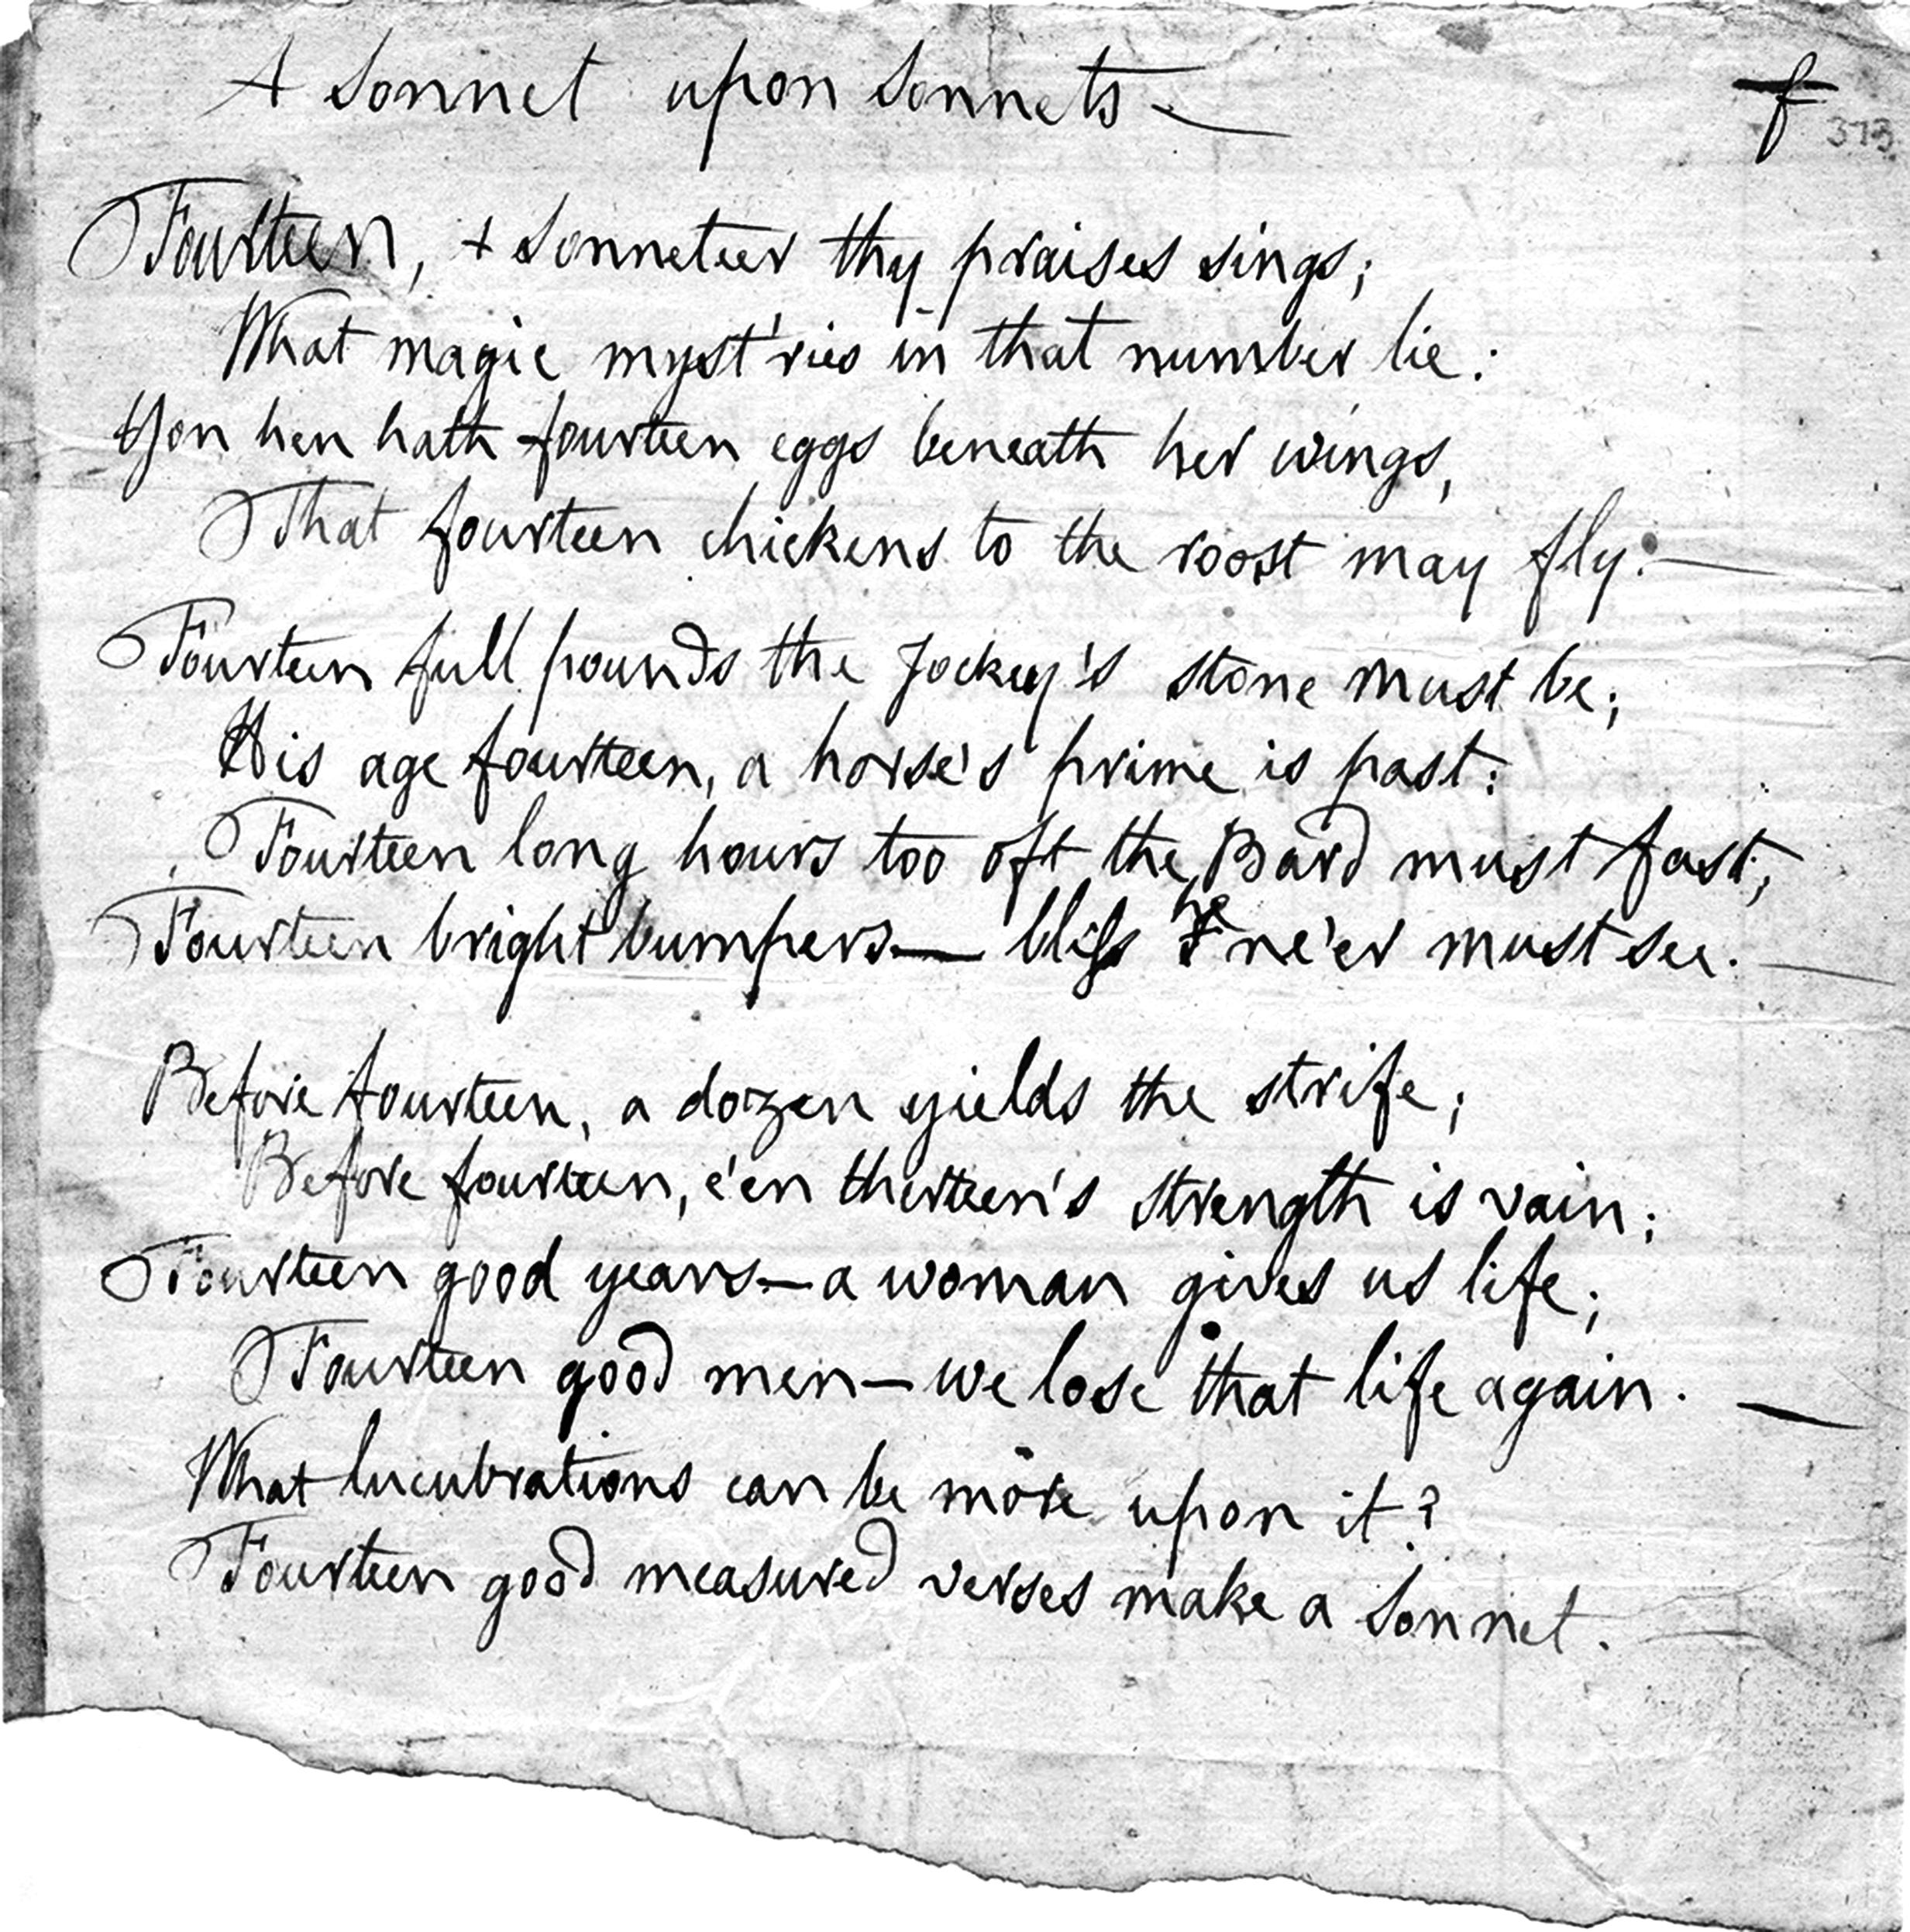 A Sonnet upon Sonnets —
f 373.
Fourteen, a Sonneteer thy praises sings;
What magic myst'ries in that number lie!
Yon hen hath fourteen eggs beneath her wings,
That fourteen chickens to the roost may fly. —
Fourteen full pounds the Jockey's stone must be;
His age fourteen, a horse's prime is past:
Fourteen long hours too oft the Bard must fast;
Fourteen bright bumpers — bliss he ne'er must see. —
Before fourteen, a dozen yields the strife;
Before fourteen, e'en thirteen's strength is vain;
Fourteen good years — a woman gives us life;
Fourteen good men — we lose that life again. —
What lucubrations can be more upon it?
Fourteen good measured verses make a Sonnet.